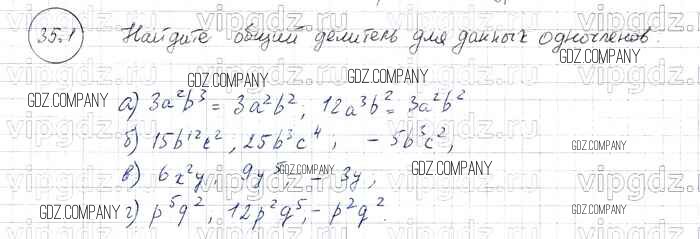 35.1 Найдите общий делитель для данных одночленов.
GDZ.COMPANY
GDZ.COMPANY GDZ.COMPANY
а) 3a²b³ = 3a²b², 12a³b² = 3a²b²
б) 15b¹²c², 25b³c⁴, - 5b³c²,
в) 6x²y, 9y⁵, - 3y,
GDZ.COMPANY GDZ.COMPANY
г) p⁵q², 12p²q⁵, - p²q².
GDZ.COMPANY GDZ.COMPANY
vipgdz.ru vipgdz.ru vipgdz.ru